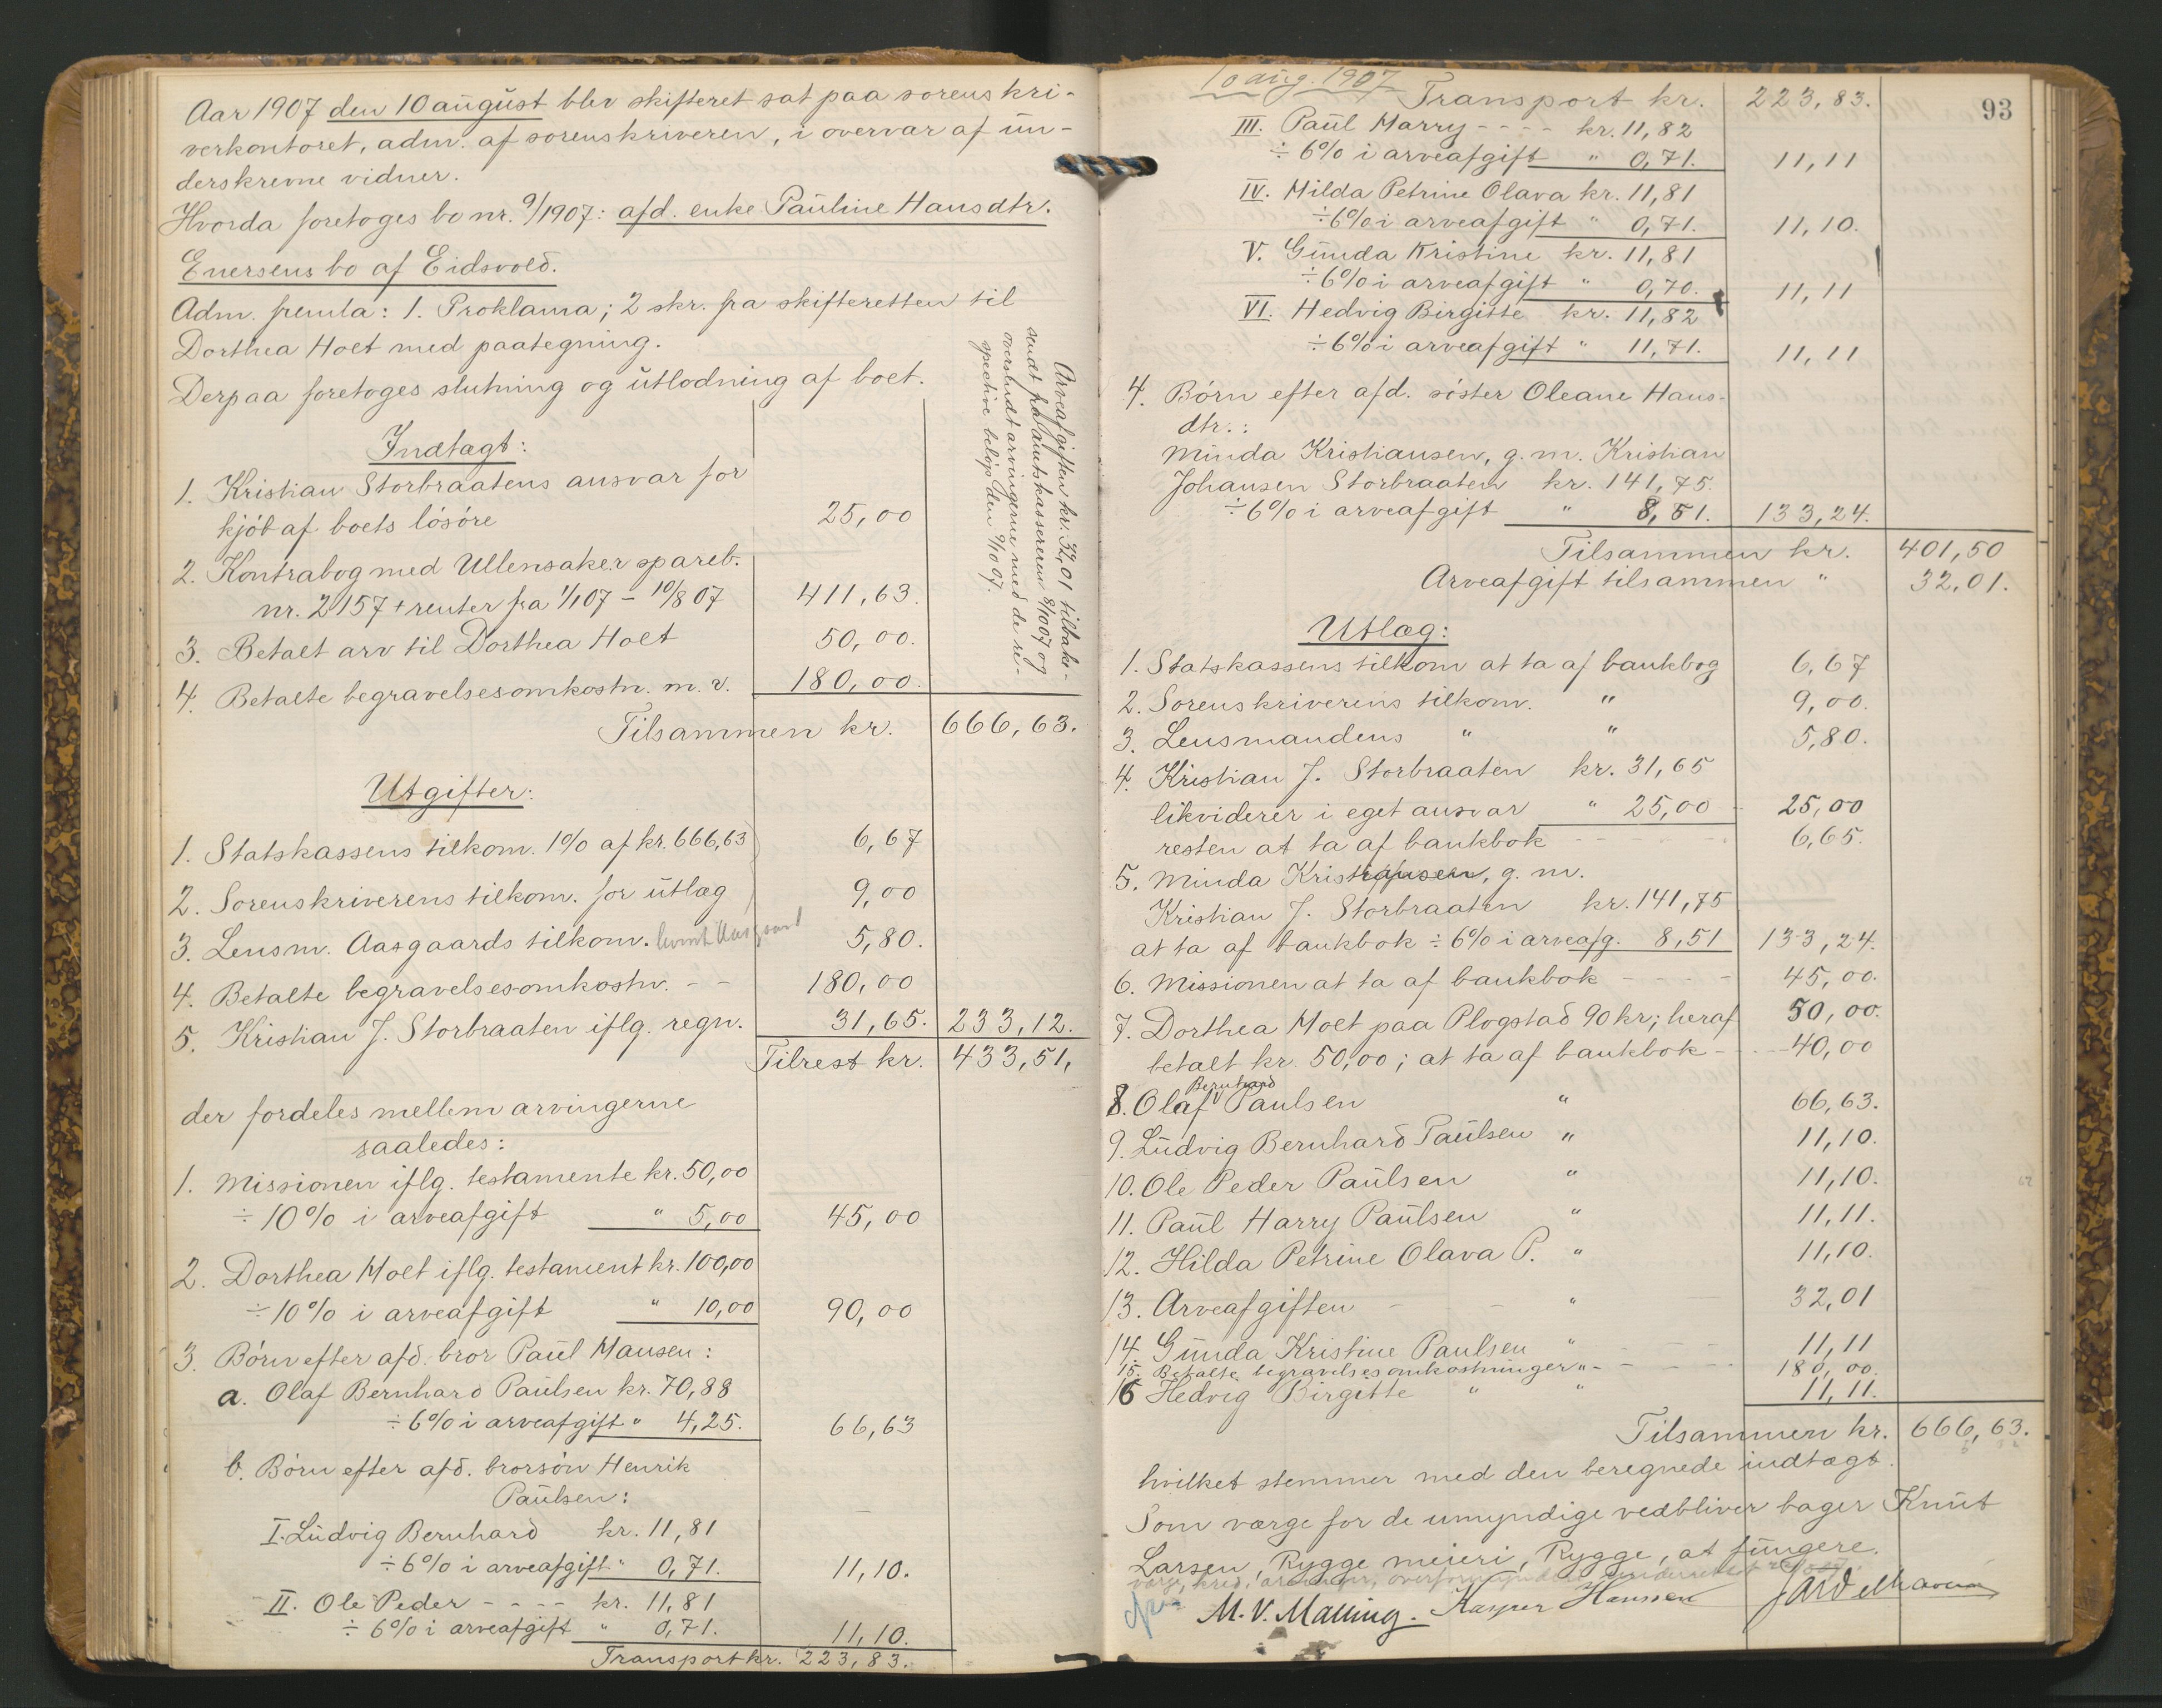 Aar 1907 den 10 august blev skifteret sat paa sorenskri-
verkontoret, adm. af sorenskriveren, i overvær af un-
derskrevne vidner.
Hvorda foretoges bo nr. 9/1907: afd. enke Pauline Hansdtr.
Enersens bo af Eidsvold.
Adm. fremla: 1. Proklama; 2 skr. fra skifteretten til
Dorthea Holt med paategning.
Derpaa foretoges slutning og utlodning af boet.
Arveafgiften kr. 32,01 tilbake-
sendt fra amtskassereren 8/10 07 og
oversendt arvingerne med de re-
spective beløp den 9/10 07.
Indtægt:
1. Kristian Storbraatens ansvar for
kjøb af boets løsøre 25,00
2. Kontrabog med Ullensaker spareb.
nr. 2157 + renter fra 1/1 07 – 10/8 07 411,63.
3. Betalt arv til Dorthea Holt 50,00.
4. Betalte begravelsesomkostn. m. v. 180,00.
Tilsammen kr. 666,63.
Utgifter:
1. Statskassens tilkom. 1% af kr. 666,63 6,67
2. Sorenskriverens tilkom. for utlæg 9,00
3. Lensm. Aasgaards tilkom. 5,80.
4. Betalte begravelsesomkostn. - - 180,00
5. Kristian J. Storbraaten iflg. regn. 31,65. 233,12.
Tilrest kr. 433,51,
der fordeles mellem arvingerne
saaledes:
1. Missionen iflg. testamente kr. 50,00
÷ 10% i arveafgift " 5,00 45,00
2. Dorthea Holt iflg. testament kr. 100,00
÷ 10% i arveafgift " 10,00 90,00
3. Børn efter afd. bror Paul Hansen:
a. Olaf Bernhard Paulsen kr. 70,88
÷ 6% i arveafgift " 4,25. 66,63
b. Børn efter afd. brorsøn Henrik
Paulsen:
I. Ludvig Bernhard kr. 11,81
÷ 6% i arveafgift " 0,71. 11,10.
II. Ole Peder - - - - kr. 11,81
÷ 6% i arveafgift " 0,71. 11,10.
Transport kr. 223,83.
10 aug. 1907
93
Transport kr. 223,83.
III. Paul Harry - - - - kr. 11,82
÷ 6% i arveafgift " 0,71. 11,11
IV. Hilda Petrine Olava kr. 11,81
÷ 6% i arveafgift " 0,71. 11,10.
V. Gunda Kristine kr. 11,81
÷ 6% i arveafgift " 0,70. 11,11
VI. Hedvig Birgitte kr. 11,82
÷ 6% i arveafgift " 11,71. 11,11
4. Børn efter afd. søster Oleane Hans-
dtr.:
Minda Kristiansen, g. m. Kristian
Johansen Storbraaten kr. 141,75.
÷ 6% i arveafgift " 8,51. 133,24.
Tilsammen kr. 401,50
Arveafgift tilsammen " 32,01.
Utlæg:
1. Statskassens tilkom at ta af bankbog 6,67
2. Sorenskriverens tilkom. " 9,00.
3. Lensmandens " " 5,80.
4. Kristian J. Storbraaten kr. 31,65
likviderer i eget ansvar " 25,00 - 25,00
resten at ta af bankbok - - - 6,65.
5. Minda Kristiansen, g. m.
Kristian J. Storbraaten kr. 141,75
at ta af bankbok ÷ 6% i arveafg. 8,51 133,24.
6. Missionen at ta af bankbok - - - - 45,00.
7. Dorthea Holt paa Plogstad 90 kr; heraf 50,00.
betalt kr. 50,00; at ta af bankbok - - - 40,00
8. Olaf Bernhard Paulsen " 66,63.
9. Ludvig Bernhard Paulsen " 11,10.
10. Ole Peder Paulsen " 11,10.
11. Paul Harry Paulsen " 11,11.
12. Hilda Petrine Olava P. " 11,10.
13. Arveafgiften - - " - 32,01
14. Gunda Kristine Paulsen " - - 11,11
15. Betalte begravelsesomkostninger " - - - - 180,00.
16 Hedvig Birgitte " " 11,11.
Tilsammen kr. 666,63.
hvilket stemmer med den beregnede indtægt.
Som værge for de umyndige vedbliver bager Knut
Larsen, Rygge meieri, Rygge, at fungere.
M. V. Malling. Kasper Hanssen